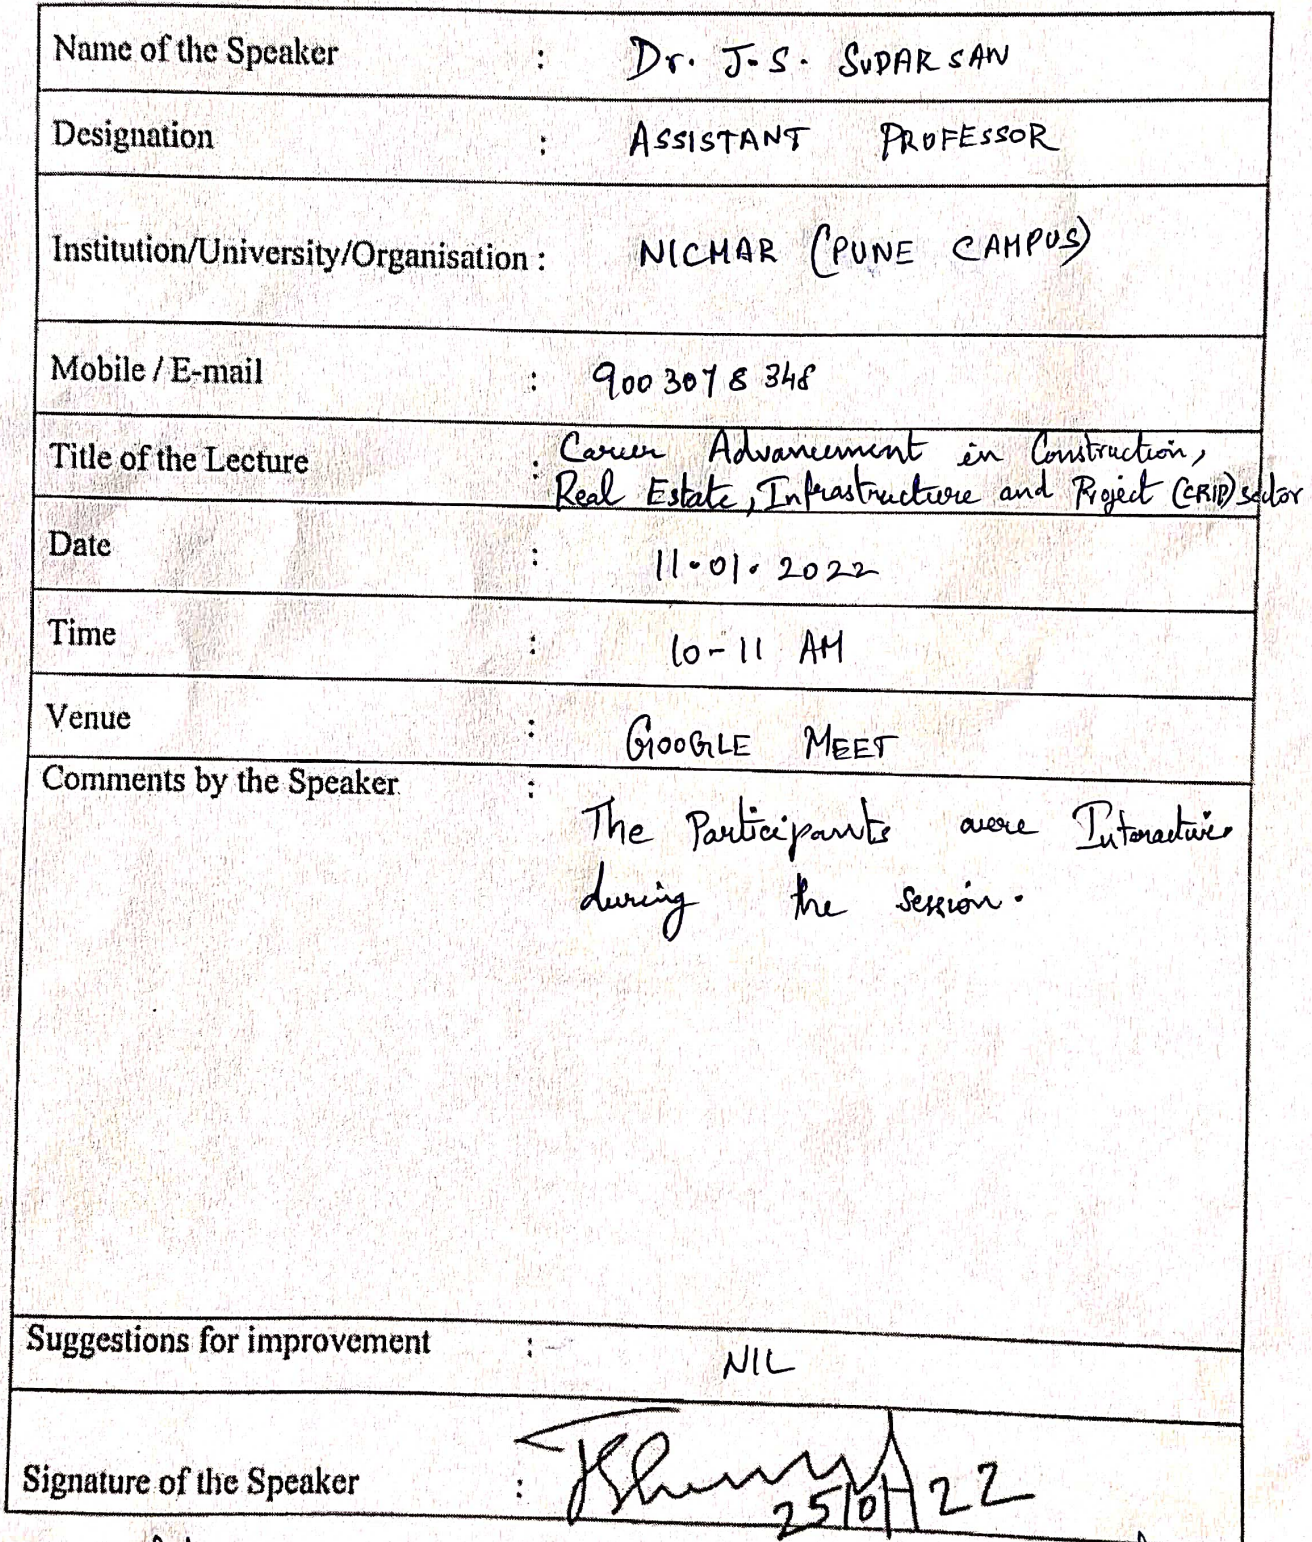 Name of the Speaker : Dr. J.S. SUDARSAN
Designation : ASSISTANT PROFESSOR
Institution/University/Organisation : NICMAR (PUNE CAMPUS)
Mobile / E-mail : 9003078348
Title of the Lecture : Career Advancement in Construction,
Real Estate, Infrastructure and Project (CRIP) sector
Date : 11.01.2022
Time : 10-11 AM
Venue : GOOGLE MEET
Comments by the Speaker :
The Participants were Interactive
during the session.
Suggestions for improvement : NIL
Signature of the Speaker :
25/01/22